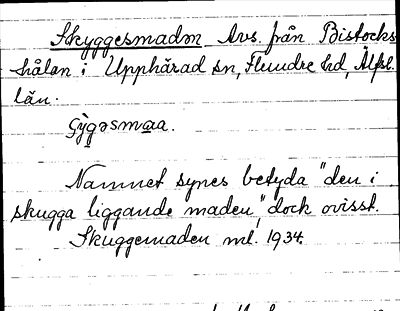 Skyggesmadm Avs. från Bistocks
hålan i Upphärad sn, Flundre hd, Älfsb.
län.
Gỳgəsmaa.
Namnet synes betyda "den i
skugga liggande maden", dock ovisst.
Skuggemaden ml. 1934.